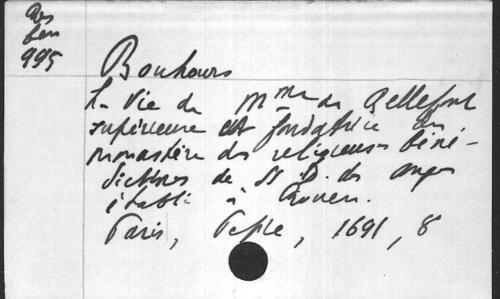 Res
Ln
995
Bouhours
La Vie de Mme de Bellefont
supérieure et fondatrice du
monastère des religieuses béné-
dictines de N. D. des anges
établi à Rouen.
Paris, 1691, 8